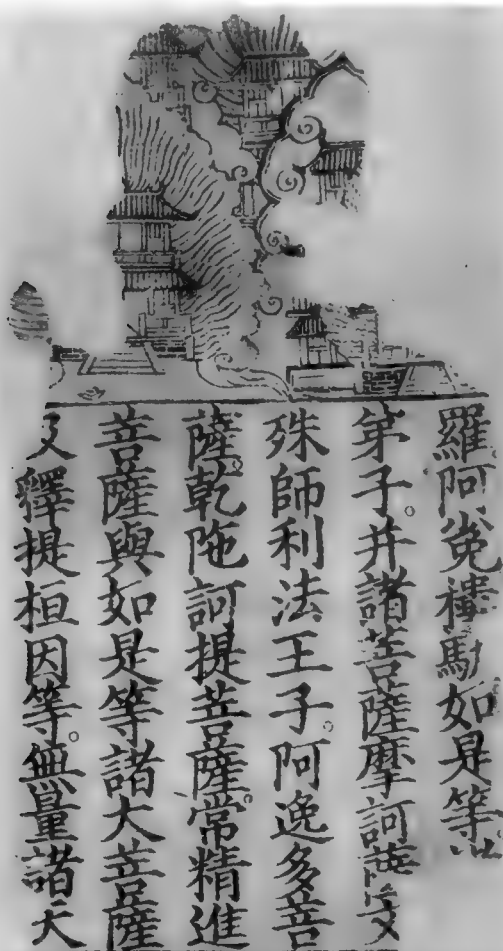 羅阿㝹樓馱如是等
弟子。并諸菩薩摩訶薩文
殊師利法王子。阿逸多菩
薩。乾陁訶提菩薩。常精進
菩薩與如是等諸大菩薩
及釋提桓因等。無量諸天